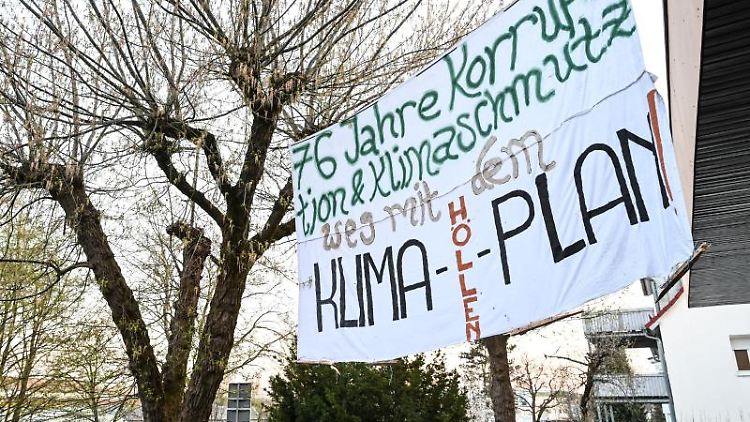 76 Jahre Korrup-
tion & Klimaschmutz
weg mit dem
KLIMA-HÖLLEN-PLAN!